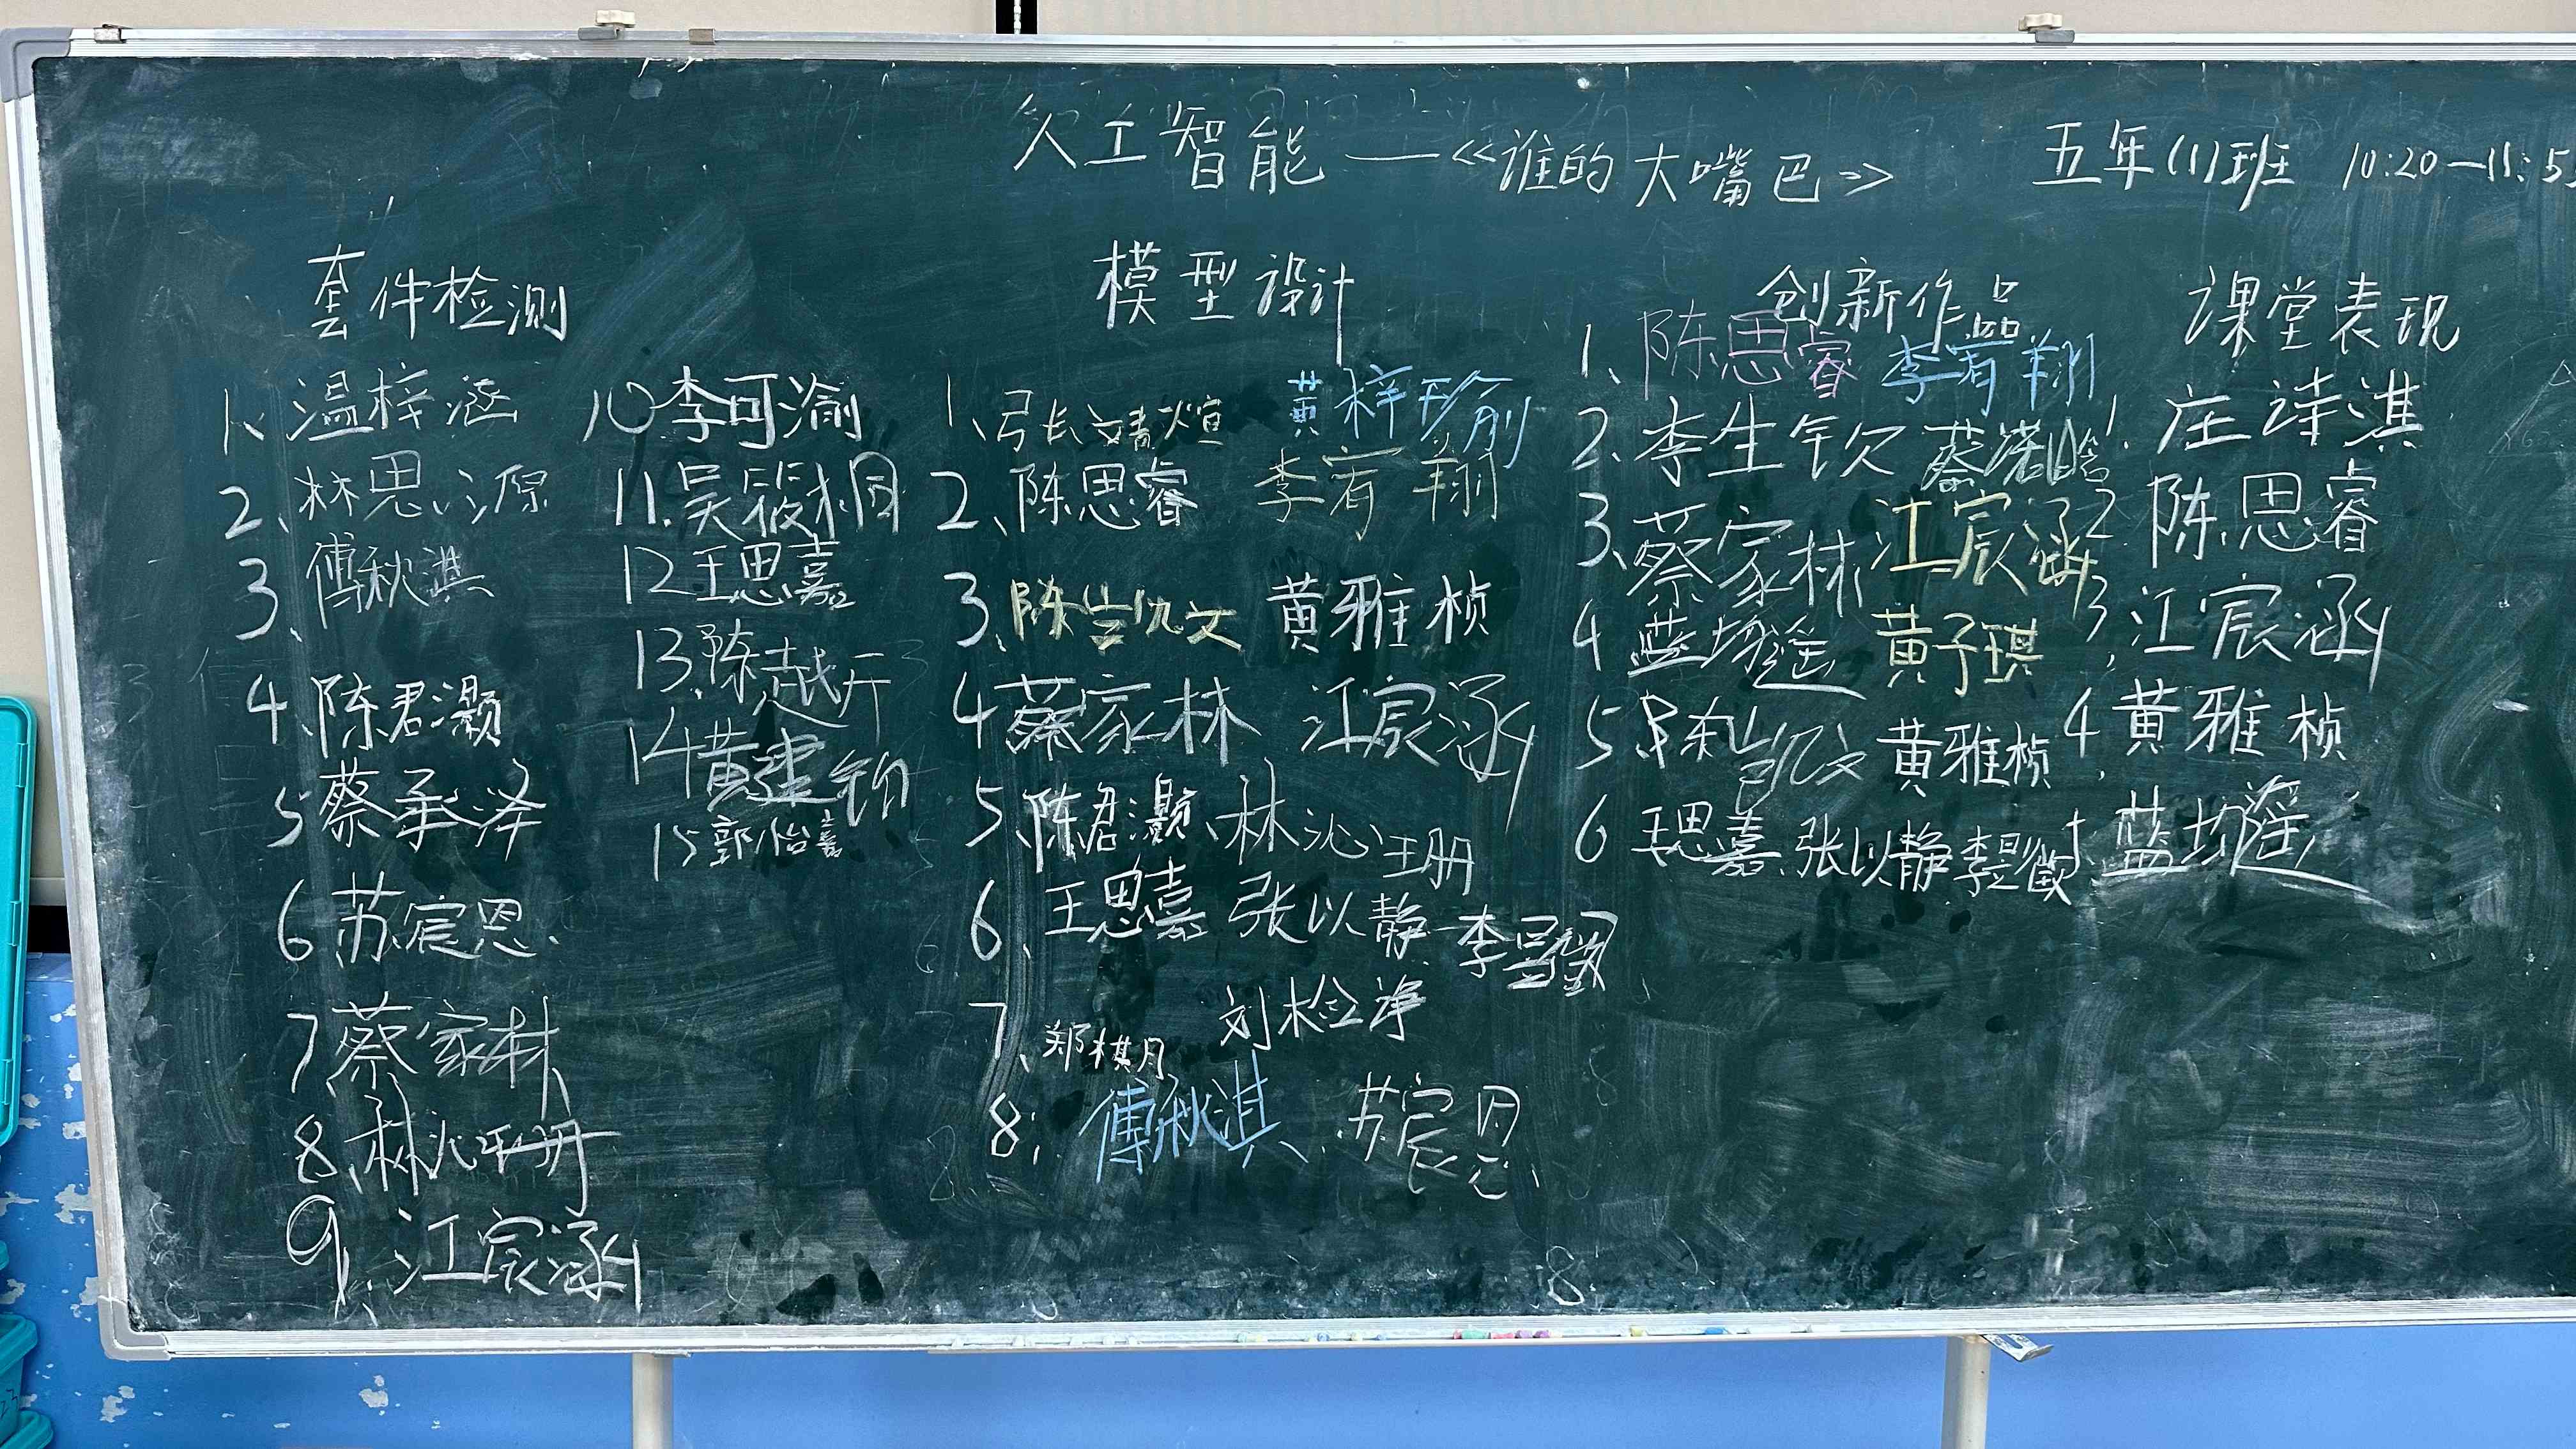 人工智能——《谁的大嘴巴》
五年(1)班 10:20—11:5
套件检测
1、温梓涵
2、林思源
3、傅秋淇
4、陈君灏
5 蔡承泽
6 苏宸恩
7 蔡家林
8、林沁珊
9、江宸涵
10 李可渝
11.吴筱桐
12 王思嘉
13.陈越开
14 黄建
15 郭怡嘉
模型设计
1、张靖煊 黄梓瑜
2、陈思睿 李宥翔
3、陈凯文 黄雅桢
4 蔡家林 江宸涵
5、陈君灏、林沁珊
6、王思嘉 张以静 李
7、郑棋月 刘
8; 傅秋淇、苏宸恩
创新作品
1、陈思睿 李宥翔
2、李生钦 蔡诺晗
3、蔡家林 江宸涵
4 蓝均遥 黄子琪
5 陈凯文 黄雅桢
6 王思嘉、张以静 李
课堂表现
1. 庄诗淇
2 陈思睿
3, 江宸涵
4, 黄雅桢
5, 蓝均遥